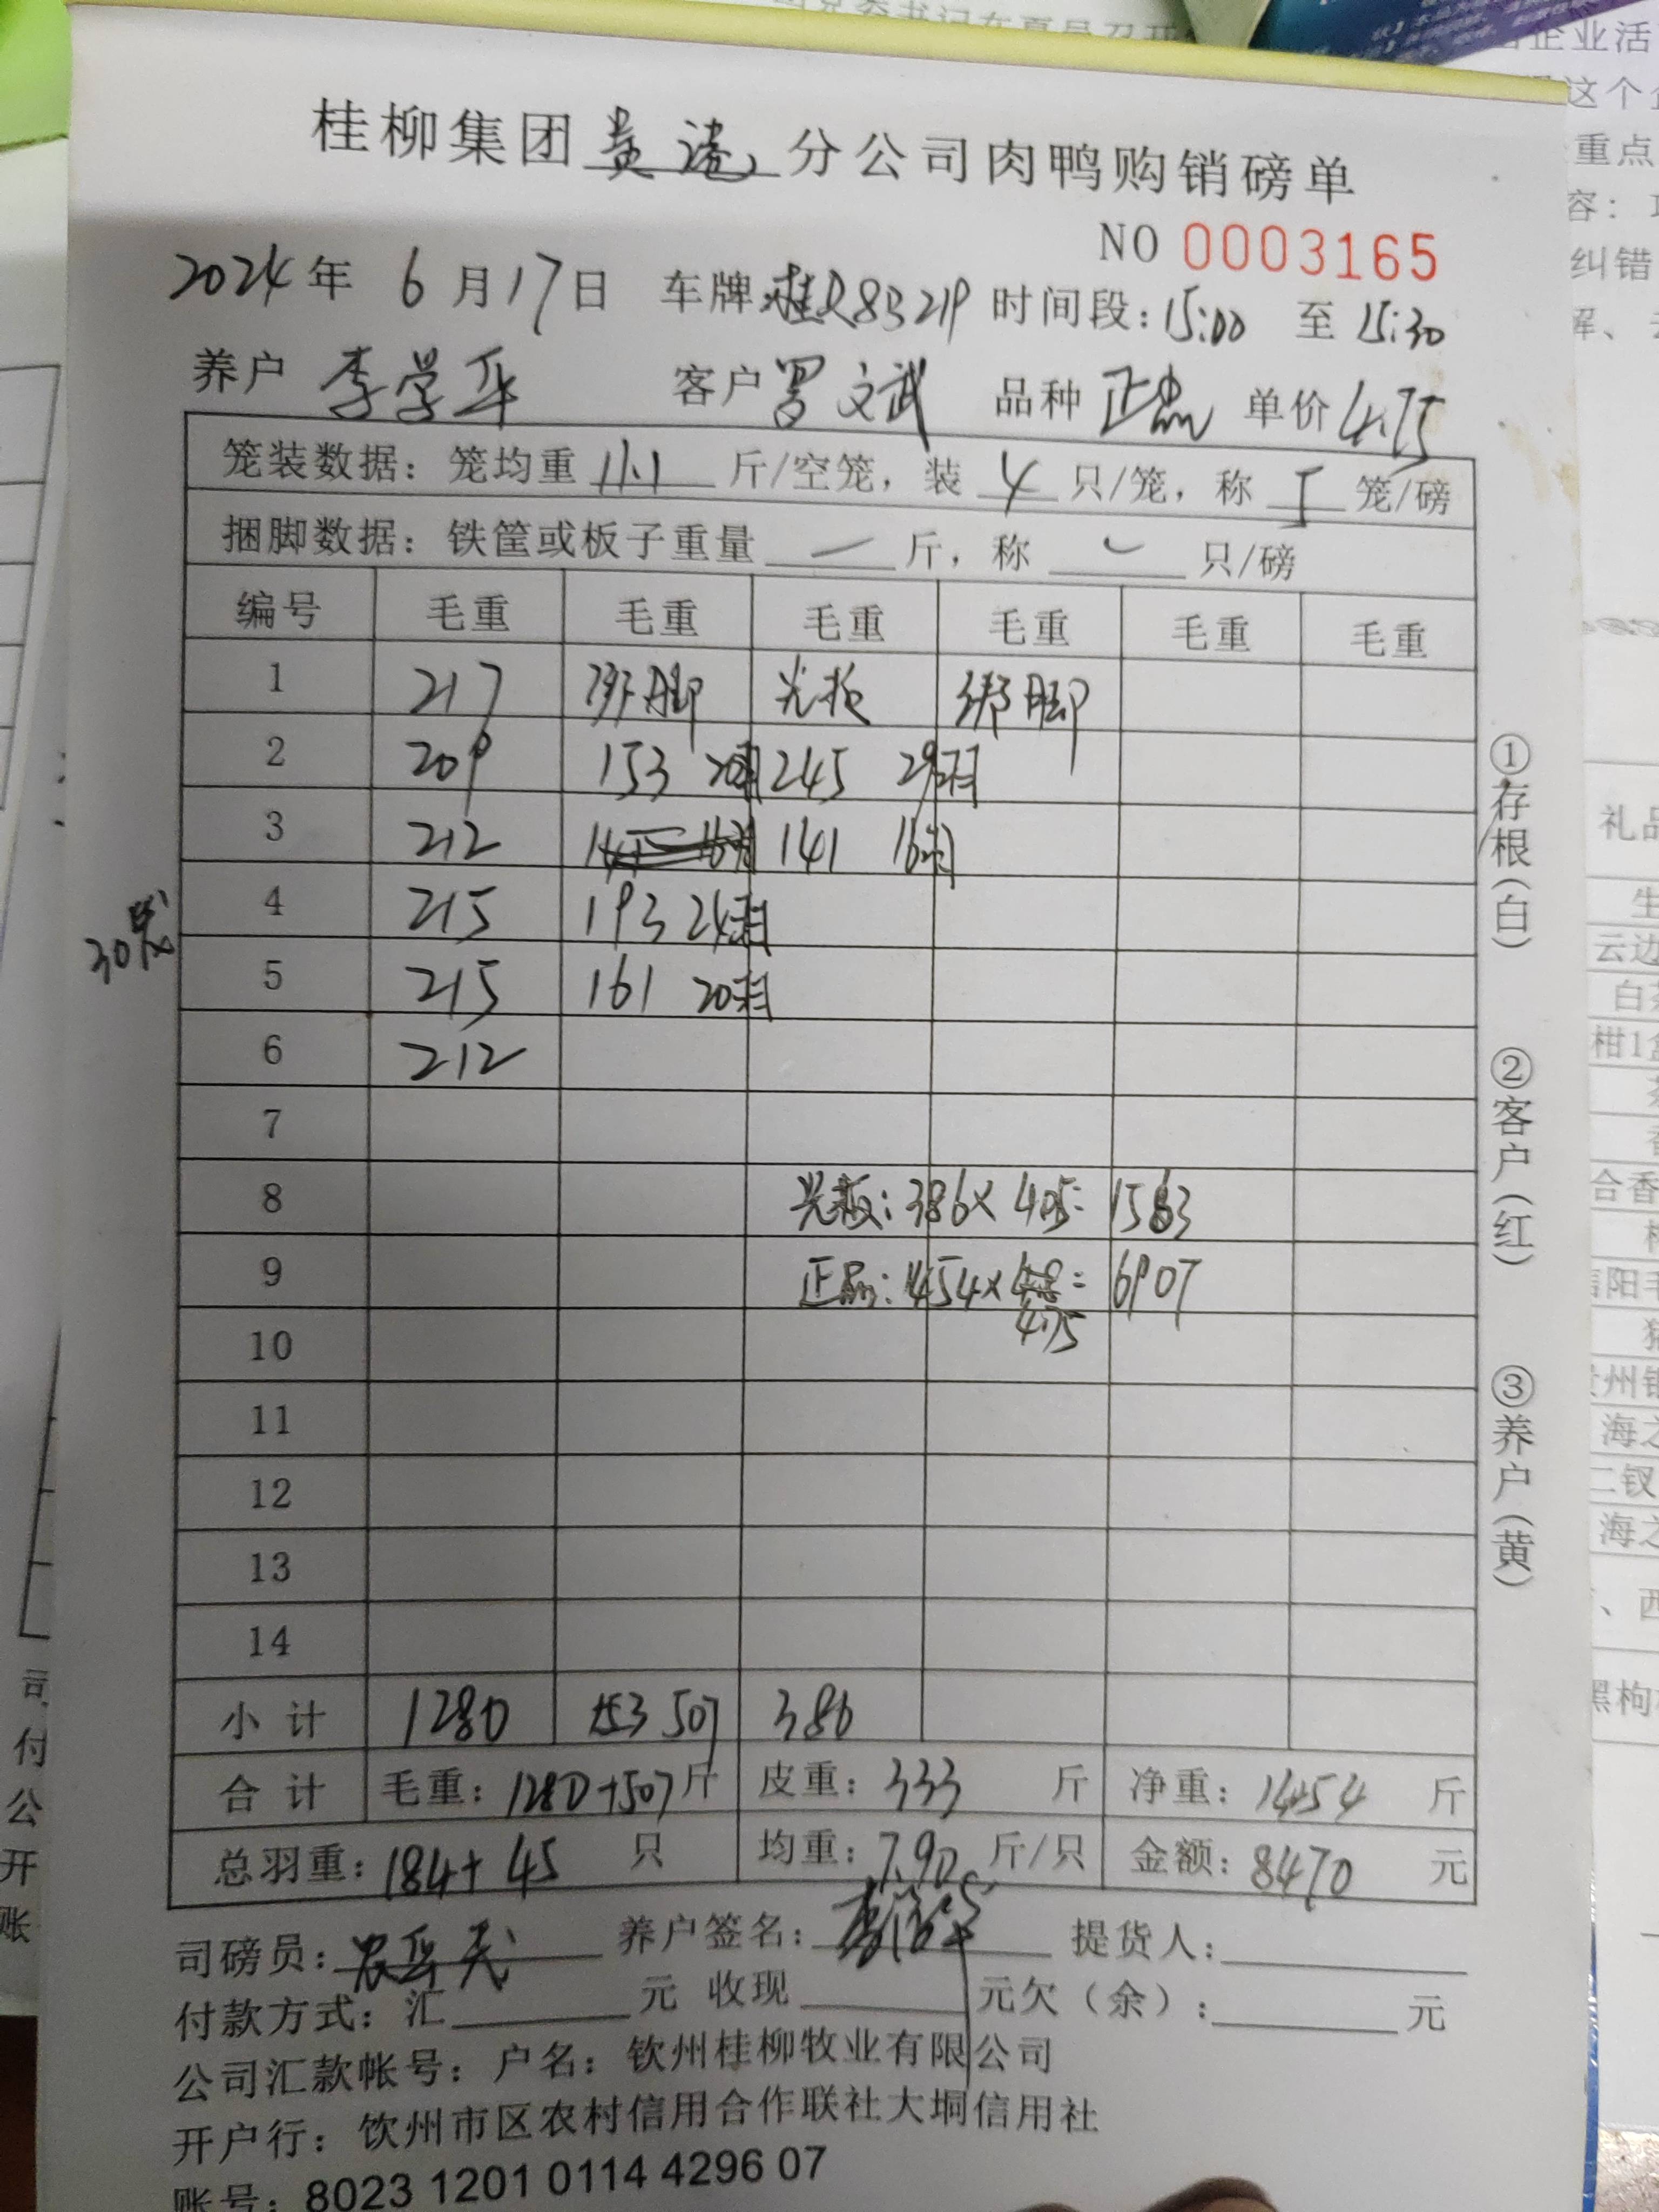 桂柳集团黄港分公司肉鸭购销磅单
NO 0003165
2024年 6月17日 车牌:桂R83219 时间段:15:00 至 15:30
养户 李学军 客户 罗文武 品种 正品 单价 4.75
笼装数据：笼均重 11.1 斤/空笼，装 4 只/笼，称 5 笼/磅
捆脚数据：铁筐或板子重量 — 斤，称 只/磅
编号 毛重 毛重 毛重 毛重 毛重 毛重
1 217 绑脚 光板 绑脚
2 209 153 20羽 245 29羽
3 212 145 16羽 141 16羽
4 215 193 24羽
5 215 161 20羽
30笼
6 212
7
8 光板: 386×4.05= 1563
9 正品: 1454×4.8= 6907
4.75
10
11
12
13
14
小计 1280 507 386
合计 毛重：1280+507斤 皮重：333 斤 净重：1454 斤
总羽重：184+45 只 均重：7.90 斤/只 金额：8470 元
司磅员： 养户签名： 提货人：
付款方式：汇 元 收现 元欠（余）： 元
公司汇款帐号：户名：钦州桂柳牧业有限公司
开户行：钦州市区农村信用合作联社大垌信用社
账号：8023 1201 0114 4296 07
①存根(白)
②客户(红)
③养户(黄)